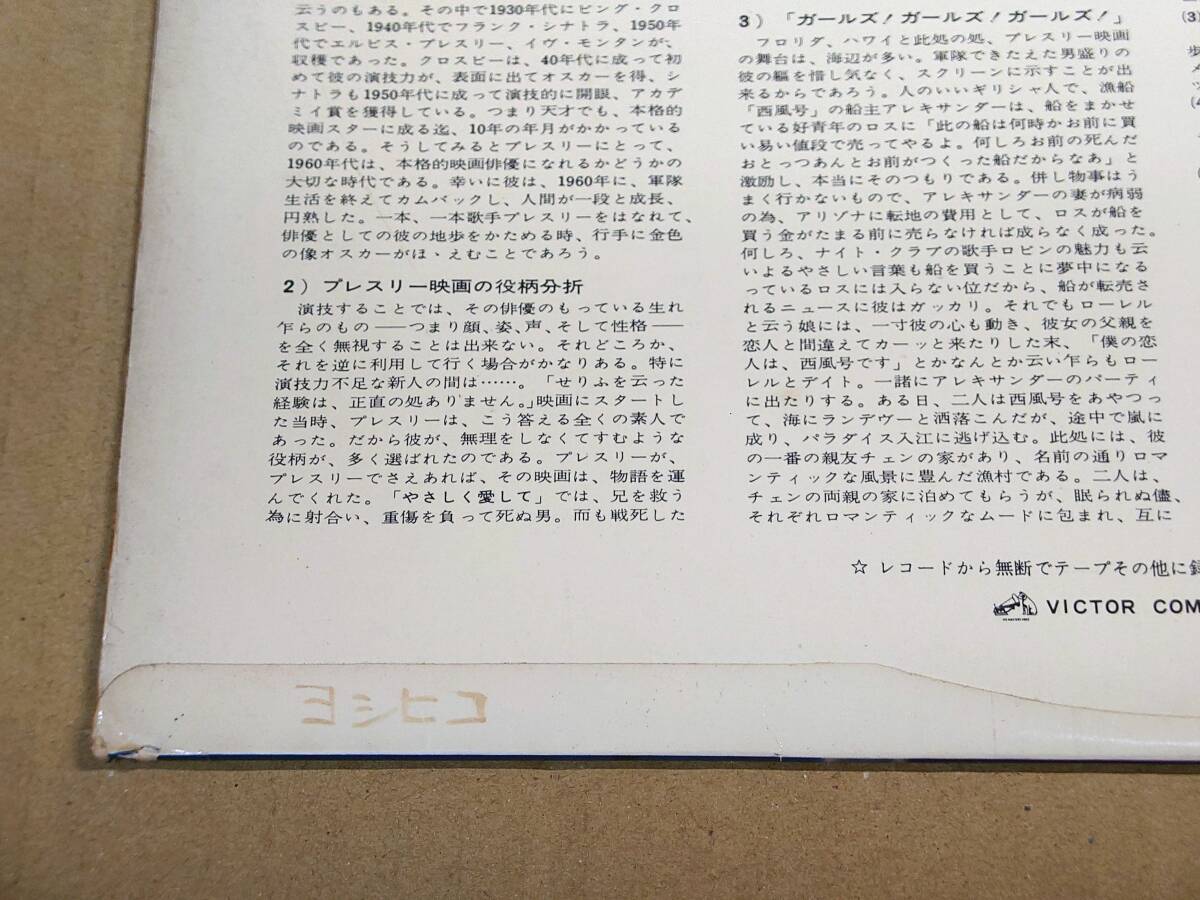 云うのもある。その中で1930年代にビング・クロ
スビー、1940年代でフランク・シナトラ、1950年
代でエルビス・プレスリー、イヴ・モンタンが、
収穫であった。クロスビーは、40年代に成って初
めて彼の演技力が、表面に出てオスカーを得、シ
ナトラも1950年代に成って演技的に開眼、アカデ
ミイ賞を獲得している。つまり天才でも、本格的
映画スターに成る迄、10年の年月がかかっている
のである。そうしてみるとプレスリーにとって、
1960年代は、本格的映画俳優になれるかどうかの
大切な時代である。幸いに彼は、1960年に、軍隊
生活を終えてカムバックし、人間が一段と成長、
円熟した。一本、一本歌手プレスリーをはなれて、
俳優としての彼の地歩をかためる時、行手に金色
の像オスカーがほゝえむことであろう。
2）プレスリー映画の役柄分折
演技することでは、その俳優のもっている生れ
乍らのもの――つまり顔、姿、声、そして性格――
を全く無視することは出来ない。それどころか、
それを逆に利用して行く場合がかなりある。特に
演技力不足な新人の間は……。「せりふを云った
経験は、正直の処ありません。」映画にスタートし
た当時、プレスリーは、こう答える全くの素人で
あった。だから彼が、無理をしなくてすむような
役柄が、多く選ばれたのである。プレスリーが、
プレスリーでさえあれば、その映画は、物語を運
んでくれた。「やさしく愛して」では、兄を救う
為に射合い、重傷を負って死ぬ男。而も戦死した
3）「ガールズ！ガールズ！ガールズ！」
フロリダ、ハワイと此処の処、プレスリー映画
の舞台は、海辺が多い。軍隊できたえた男盛りの
彼の軀を惜し気なく、スクリーンに示すことが出
来るからであろう。人のいいギリシャ人で、漁船
「西風号」の船主アレキサンダーは、船をまかせ
ている好青年のロスに「此の船は何時かお前に買
い易い値段で売ってやるよ。何しろお前の死んだ
おとっつあんとお前がつくった船だからなあ」と
激励し、本当にそのつもりである。併し物事はう
まく行かないもので、アレキサンダーの妻が病弱
の為、アリゾナに転地の費用として、ロスが船を
買う金がたまる前に売らなければ成らなく成った。
何しろ、ナイト・クラブの歌手ロビンの魅力も云
いよるやさしい言葉も船を買うことに夢中になる
っているロスには入らない位だから、船が転売さ
れるニュースに彼はガッカリ。それでもローレル
と云う娘には、一寸彼の心も動き、彼女の父親を
恋人と間違えてカーッと来たりした末、「僕の恋
人は、西風号です」とかなんとか云い乍らもロー
レルとデイト。一諸にアレキサンダーのパーティ
に出たりする。ある日、二人は西風号をあやつっ
て、海にランデヴーと洒落こんだが、途中で嵐に
成り、パラダイス入江に逃げ込む。此処には、彼
の一番の親友チェンの家があり、名前の通りロマ
ンティックな風景に豊んだ漁村である。二人は、
チェンの両親の家に泊めてもらうが、眠られぬ儘、
それぞれロマンティックなムードに包まれ、互に
(3)
歩
☆ レコードから無断でテープその他に録
VICTOR COM
ヨシヒコ